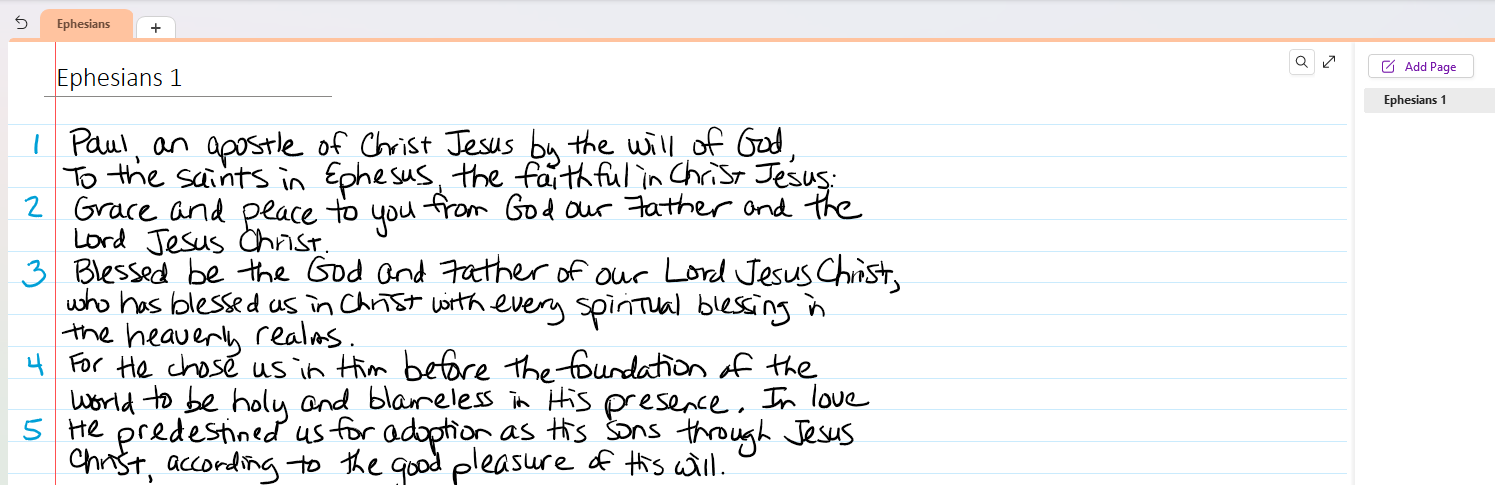 Ephesians
+
Add Page
Ephesians 1
Ephesians 1
1 Paul, an apostle of Christ Jesus by the will of God,
To the saints in Ephesus, the faithful in Christ Jesus:
2 Grace and peace to you from God our Father and the
Lord Jesus Christ.
3 Blessed be the God and Father of our Lord Jesus Christ,
who has blessed us in Christ with every spiritual blessing in
the heavenly realms.
4 For He chose us in Him before the foundation of the
world to be holy and blameless in His presence. In love
5 He predestined us for adoption as His sons through Jesus
Christ, according to the good pleasure of His will.